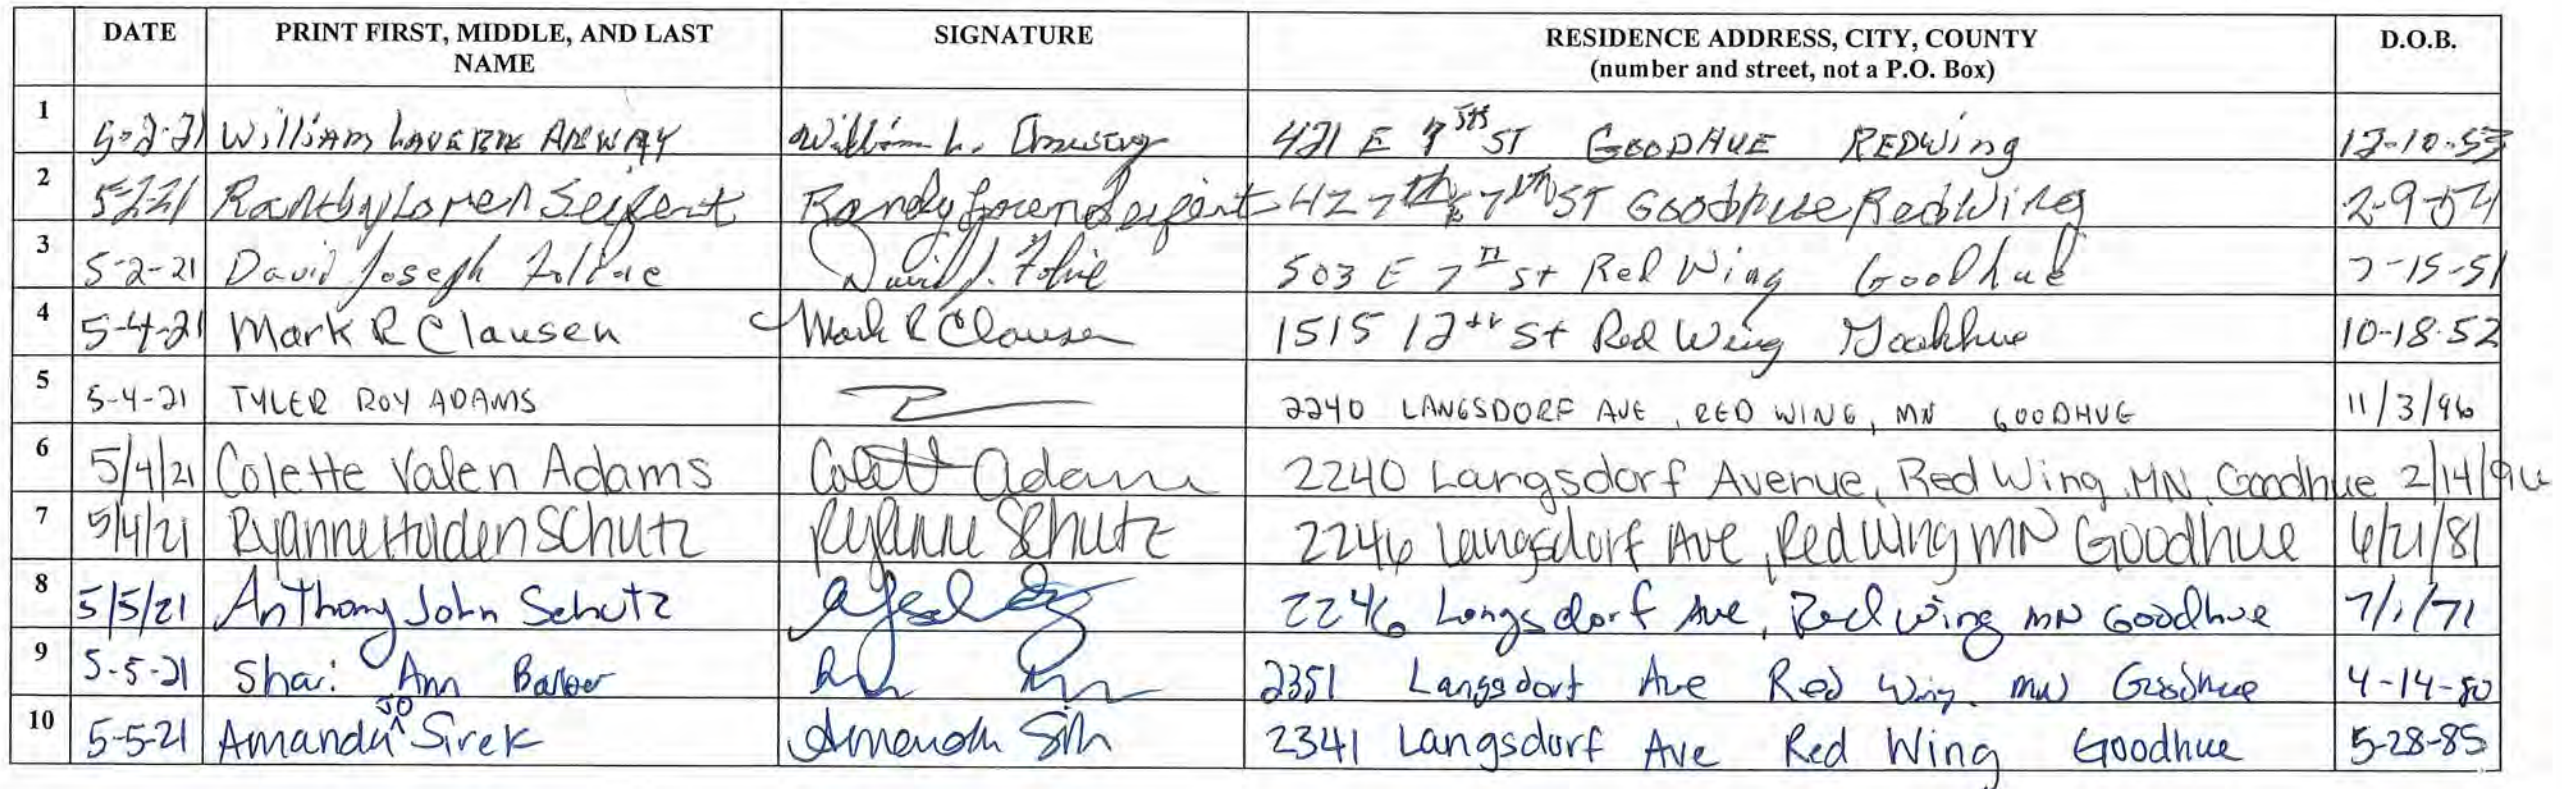 DATE PRINT FIRST, MIDDLE, AND LAST NAME SIGNATURE RESIDENCE ADDRESS, CITY, COUNTY (number and street, not a P.O. Box) D.O.B.
1 5-2-21 William Laverne Anway William L. 421 E 7th ST GOODHUE REDWing 12-10-53
2 5-2-21 Loren Seifert Randy Loren Seifert 427 7th ST Goodhue Red Wing 2-9-54
3 5-2-21 David Joseph David J. 503 E 7th St Red Wing Goodhue 7-15-51
4 5-4-21 Mark R Clausen Mark R Clausen 1515 12th St Red Wing Goodhue 10-18-52
5 5-4-21 TYLER ROY ADAMS 2240 LANGSDORF AVE, RED WING, MN GOODHUE 11/3/96
6 5/4/21 Colette Valen Adams Colett Adams 2240 Langsdorf Avenue, Red Wing, MN, Goodhue 2/14/96
7 5/4/21 Ryanne Holden Schutz Ryanne Schutz 2246 Langsdorf Ave, Red Wing MN Goodhue 6/21/81
8 5/5/21 Anthony John Schutz 2246 Langsdorf Ave, Red Wing MN Goodhue 7/1/71
9 5-5-21 Shari Ann 2351 Langsdorf Ave Red Wing, MN Goodhue 4-14-80
10 5-5-21 Amanda JO Sirek Amanda 2341 Langsdorf Ave Red Wing Goodhue 5-28-85